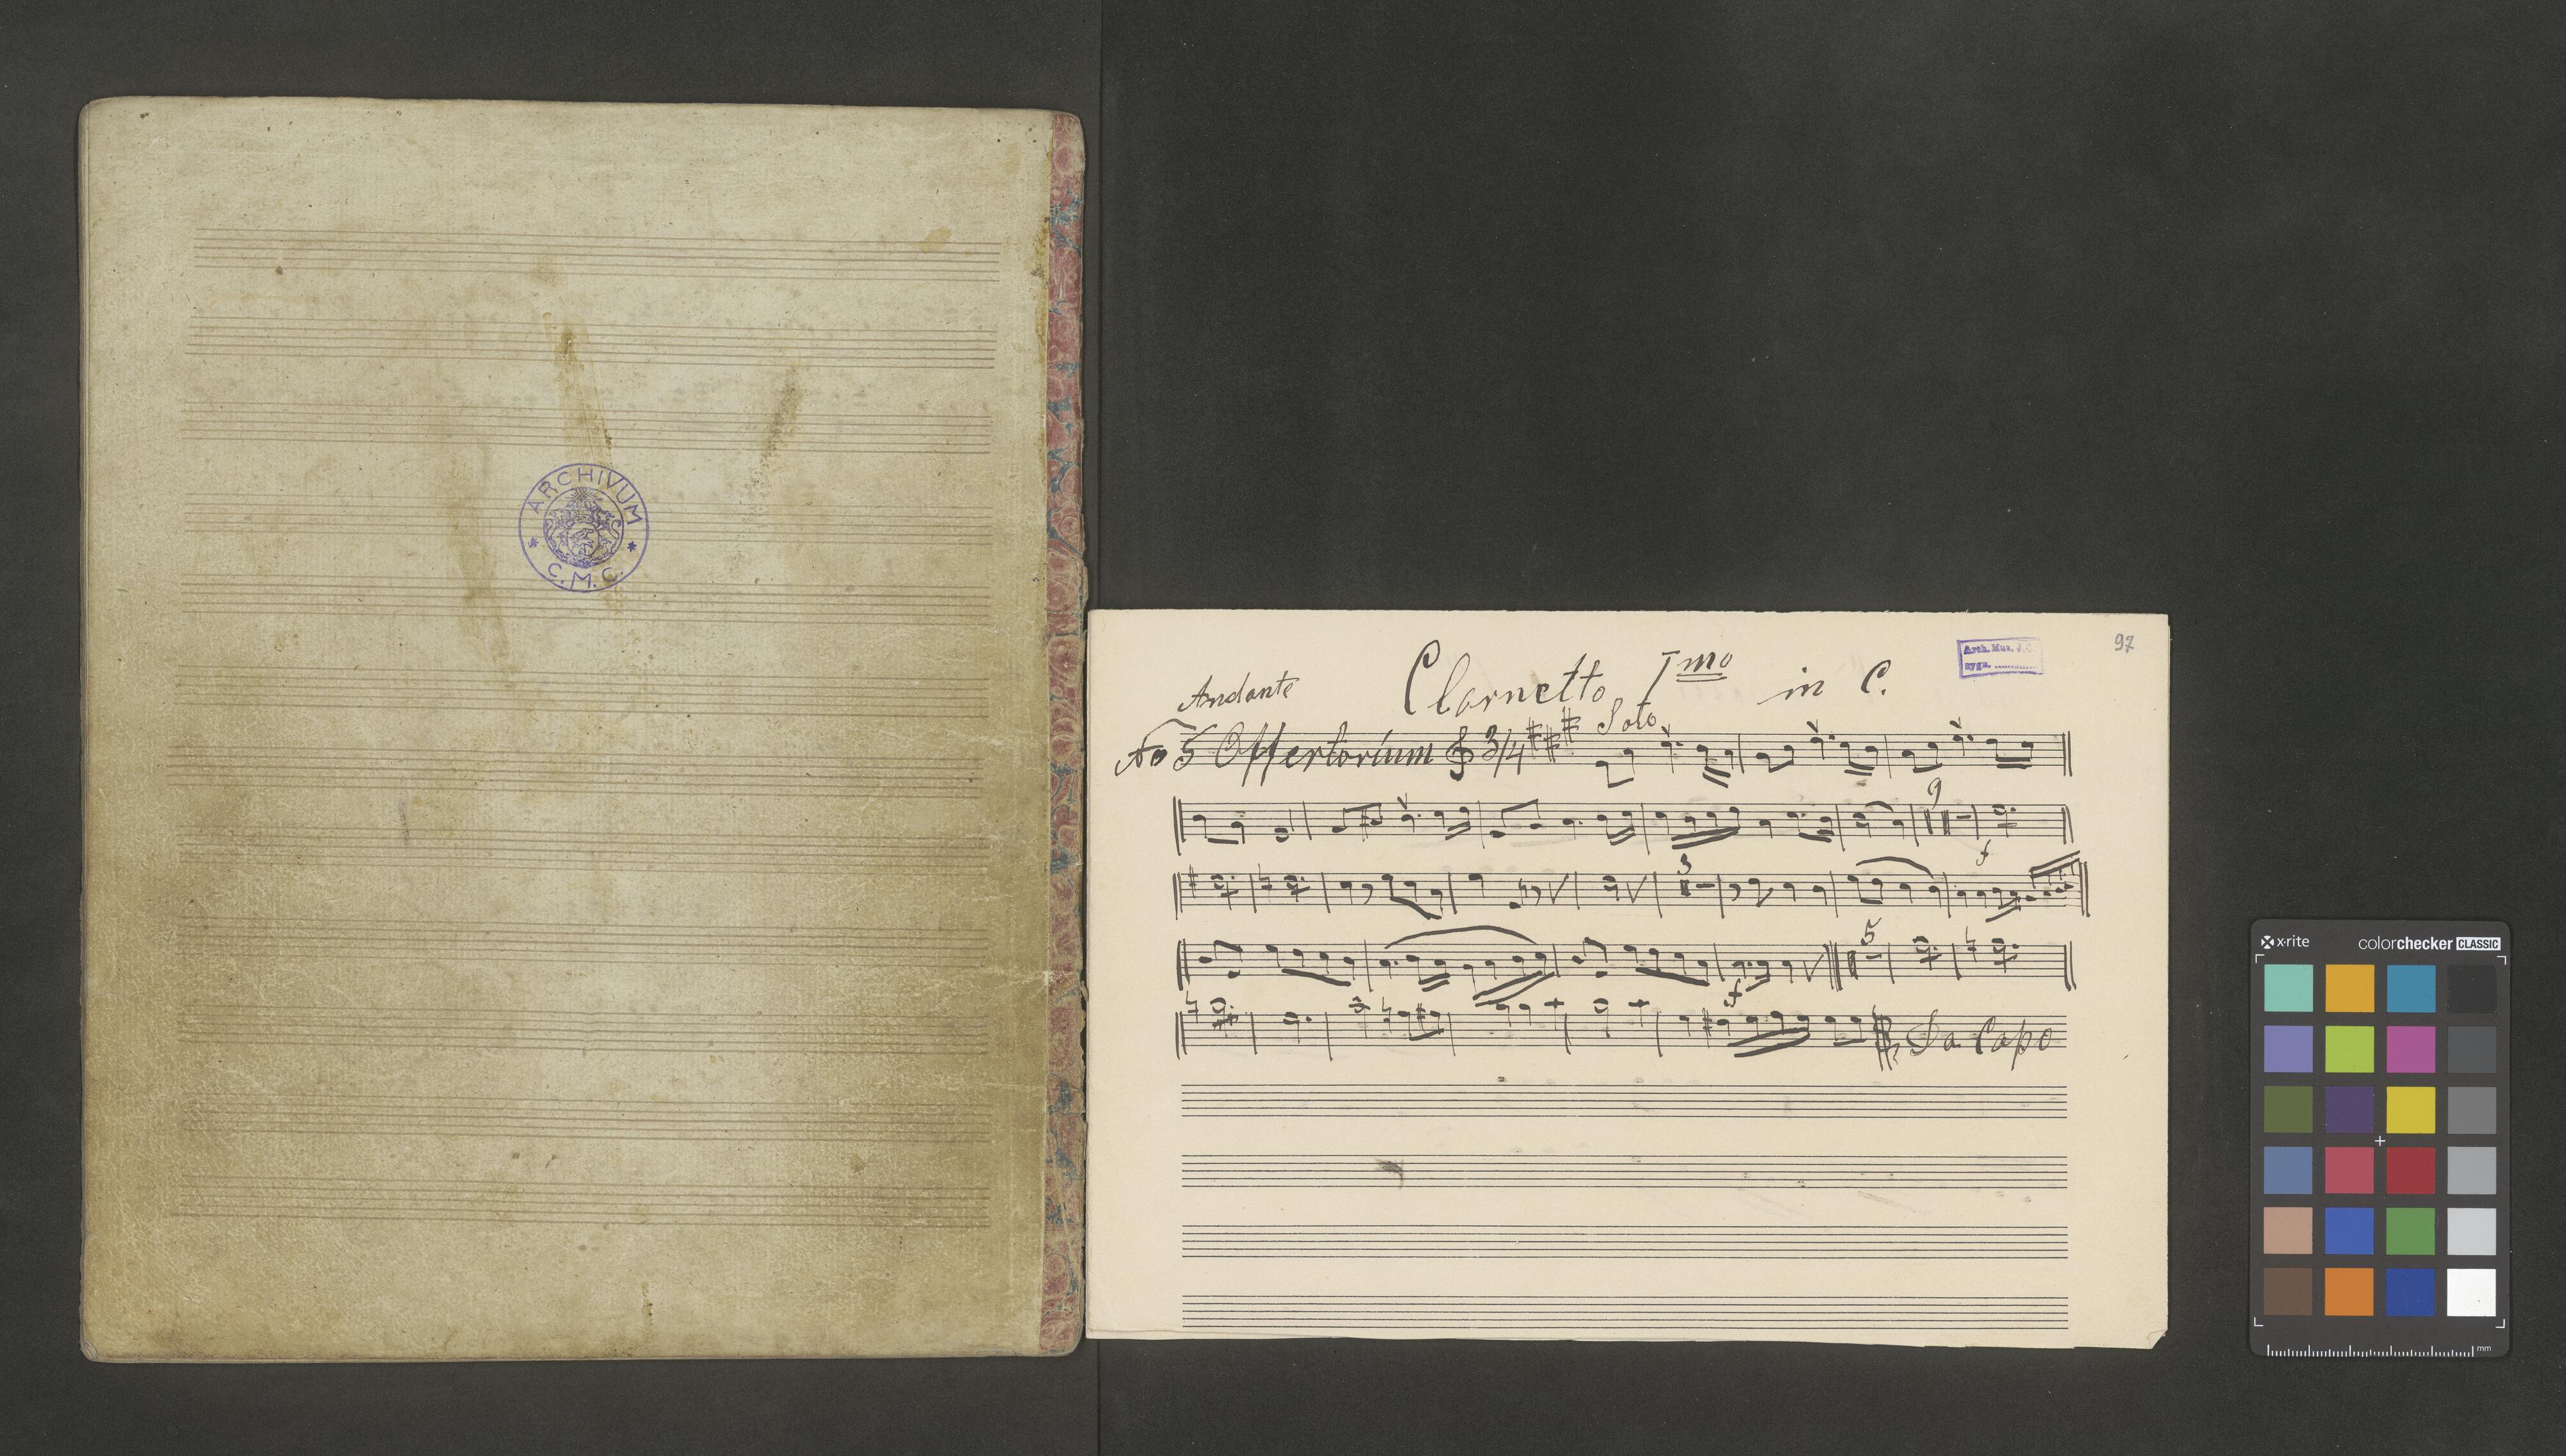 ARCHIVUM
C. M. C.
97
Arch. Mus. J.G.
Andante
Clarnetto Imo in C.
No 5 Offertorium 3/4 Solo
9
f
3
5
f
Da Capo
x-rite
colorchecker CLASSIC
mm